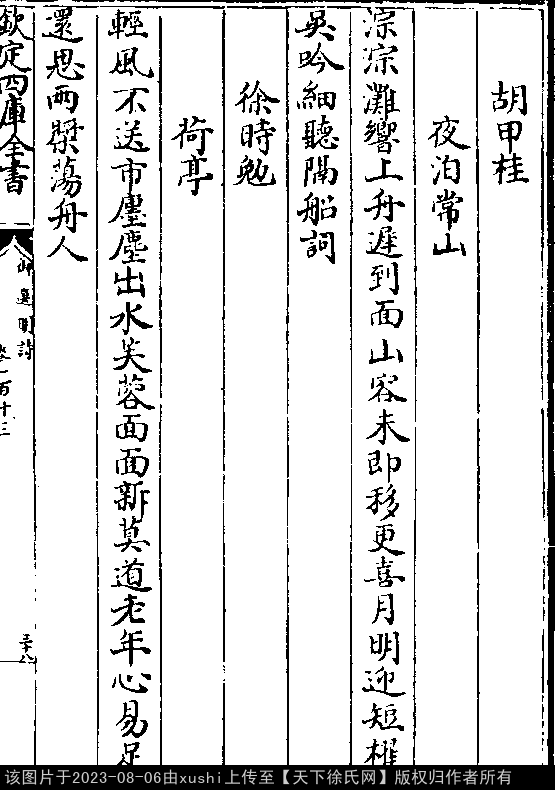 胡甲桂
夜泊常山
淙淙灘響上舟遲到面山容未即移更喜月明迎短櫂
吳吟細聽隔船詞
徐時勉
荷亭
輕風不送市廛塵出水芙蓉面面新莫道老年心易足
還思兩槳蕩舟人
欽定四庫全書
御選明詩
卷一百十三
三十八
该图片于2023-08-06由xushi上传至【天下徐氏网】版权归作者所有